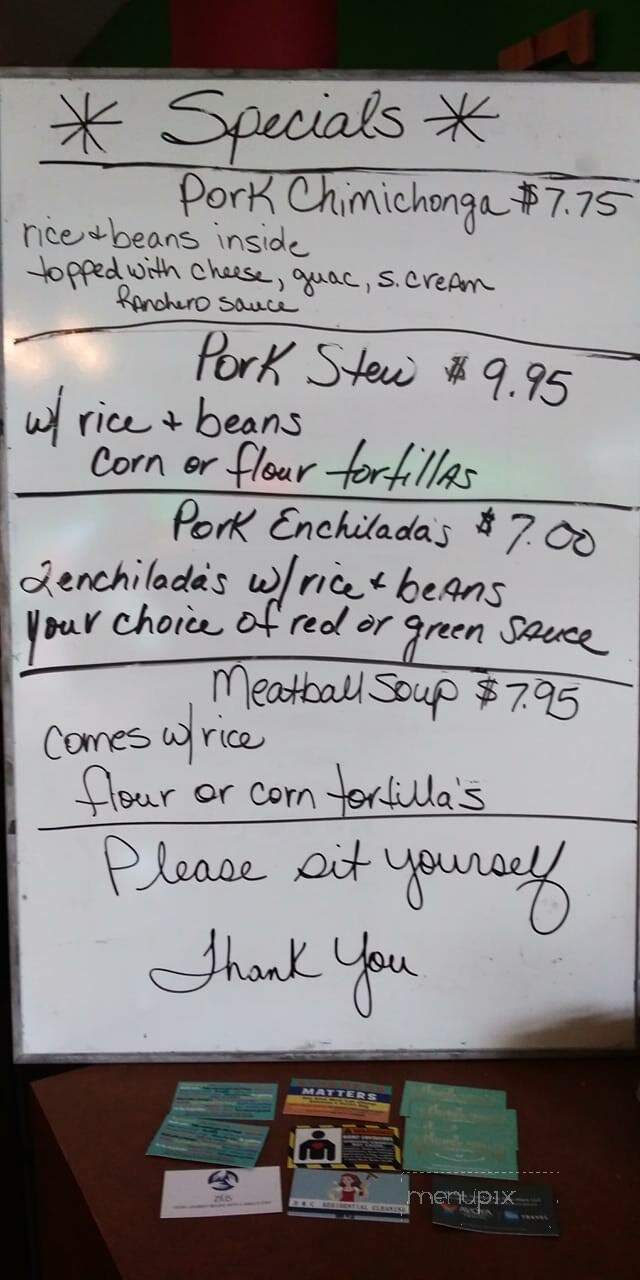 * Specials *
Pork Chimichonga $7.75
rice & beans inside
topped with cheese, guac, s. cream
Ranchero sauce
Pork Stew $9.95
w/ rice + beans
corn or flour tortillas
Pork Enchilada's $7.00
2 enchilada's w/ rice + beans
your choice of red or green sauce
Meatball Soup $7.95
Comes w/ rice
flour or corn tortilla's
Please sit yourself
Thank You
MATTERS
RESIDENTIAL CLEANING
menupix
TRAVEL